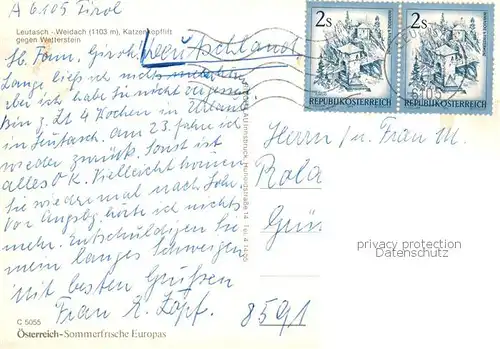 A 6105 Tirol
Leutasch - Weidach (1103 m), Katzenkopflift
gegen Wetterstein
Lb. Fam.
Lange ließ ich nichts
aber ich habe Sie nicht vergessen
Bin z. Zt 4 Wochen in Urlaub
in Leutasch. am 23. fahre ich
wieder zurück. Sonst ist
alles O.K. Vielleicht komen
Sie wiedermal nach
Von Angsbg. hörte ich nichts
mehr. Entschuldigen Sie
mein langes Schweigen
Mit besten Grüßen
Frau R. Zopf.
C 5055
Österreich-Sommerfrische Europas
2s
REPUBLIK ÖSTERREICH
2s
REPUBLIK ÖSTERREICH
6105
Herrn / u. Frau M.
Rola
privacy protection
Datenschutz
8591